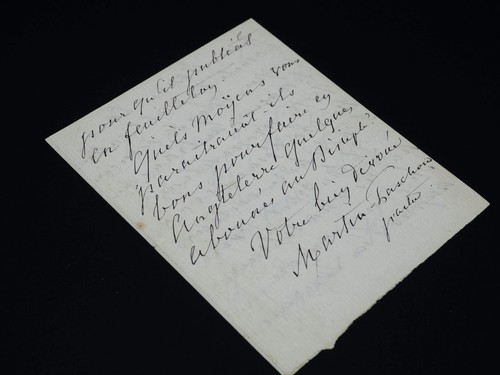 pour qu'il publié
en feuilleton.
Quels moÿens vous
paraitraient ils
bons pour faire en
Angleterre quelques
abonnés au
Votre bien dévoué
Martin-Paschoud
pasteur